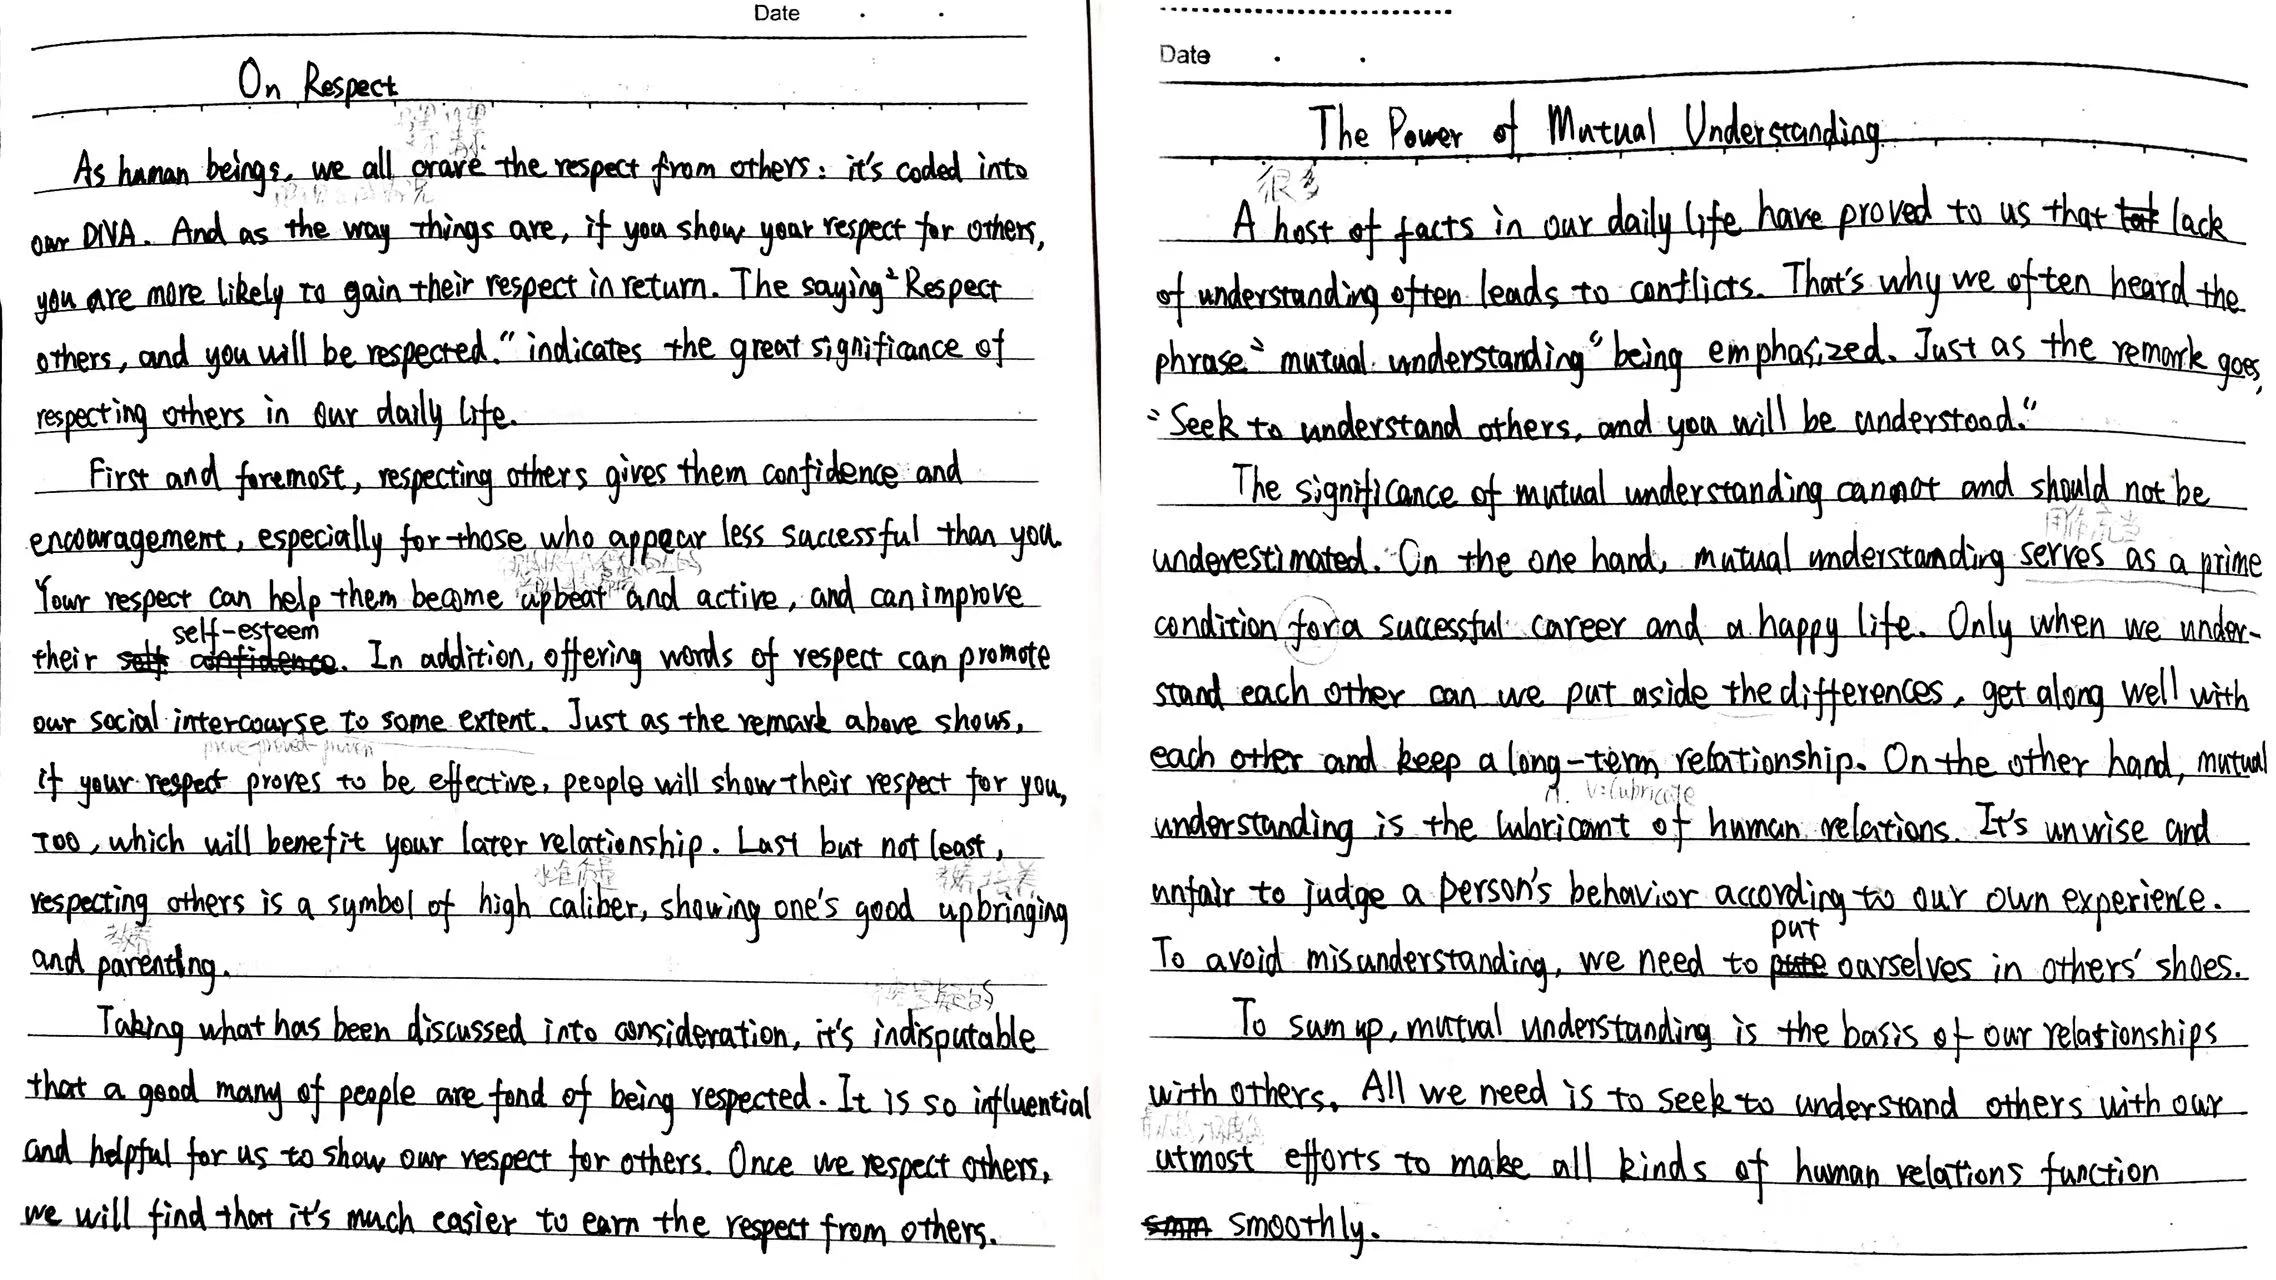 Date
On Respect
As human beings, we all crave the respect from others: it's coded into
our DNA. And as the way things are, if you show your respect for others,
you are more likely to gain their respect in return. The saying "Respect
others, and you will be respected." indicates the great significance of
respecting others in our daily life.
First and foremost, respecting others gives them confidence and
encouragement, especially for those who appear less successful than you.
Your respect can help them become upbeat and active, and can improve
self-esteem
their self confidence. In addition, offering words of respect can promote
our social intercourse to some extent. Just as the remark above shows,
prove-proved-proven
if your respect proves to be effective, people will show their respect for you,
too, which will benefit your later relationship. Last but not least,
水准 质量 教养 培养
respecting others is a symbol of high caliber, showing one's good upbringing
教养
and parenting.
Taking what has been discussed into consideration, it's indisputable
that a good many of people are fond of being respected. It is so influential
and helpful for us to show our respect for others. Once we respect others,
we will find that it's much easier to earn the respect from others.
Date
The Power of Mutual Understanding
很多
A host of facts in our daily life have proved to us that tat lack
of understanding often leads to conflicts. That's why we often heard the
phrase "mutual understanding" being emphasized. Just as the remark goes,
"Seek to understand others, and you will be understood."
The significance of mutual understanding cannot and should not be
用作充当
underestimated. On the one hand, mutual understanding serves as a prime
condition for a successful career and a happy life. Only when we under-
stand each other can we put aside the differences, get along well with
each other and keep a long-term relationship. On the other hand, mutual
n. v: lubricate
understanding is the lubricant of human relations. It's unwise and
unfair to judge a person's behavior according to our own experience.
put
To avoid misunderstanding, we need to pute ourselves in others' shoes.
To sum up, mutual understanding is the basis of our relationships
with others. All we need is to seek to understand others with our
utmost efforts to make all kinds of human relations function
smm smoothly.